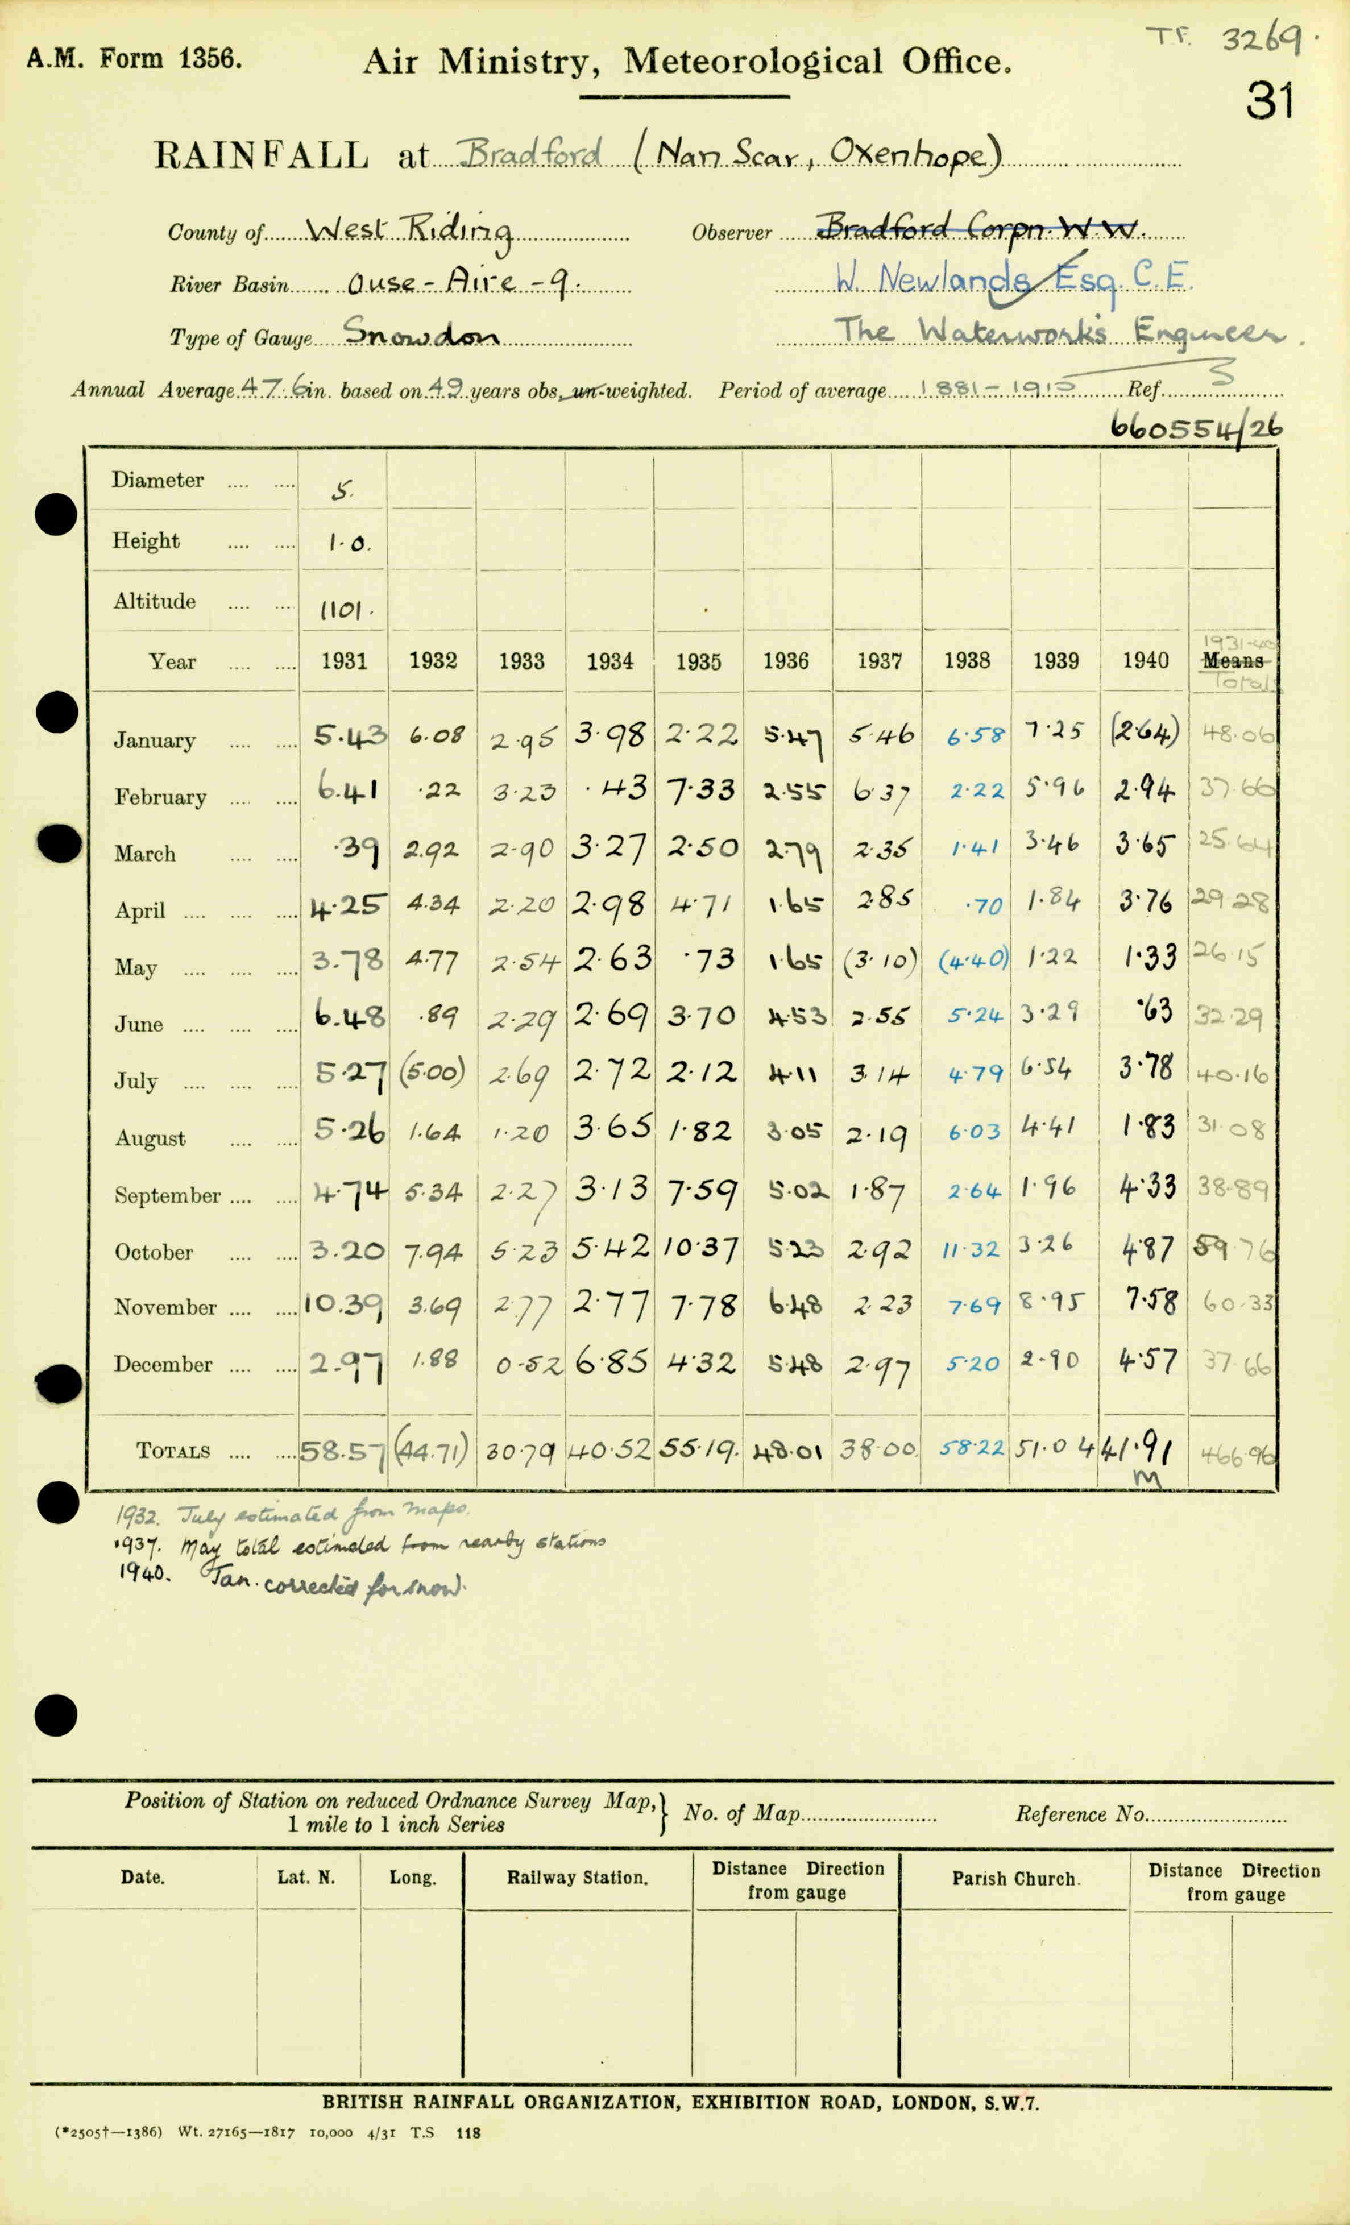 Tr. 3269.
A.M. Form 1356. Air Ministry, Meteorological Office.
31
RAINFALL at Bradford (Nan Scar, Oxenhope)
County of West Riding Observer Bradford Corpn. W.W.
River Basin Ouse - Aire - 9. W. Newlands Esq. C.E.
Type of Gauge Snowdon The Waterworks Engineer.
Annual Average 47.6 in. based on 49 years obs. un-weighted. Period of average 1881-1915 Ref. 3
660554/26
Diameter 5.
Height 1.0.
Altitude 1101.
1931-40
Year 1931 1932 1933 1934 1935 1936 1937 1938 1939 1940 Means
Totals
January 5.43 6.08 2.95 3.98 2.22 5.47 5.46 6.58 7.25 (2.64) 48.06
February 6.41 .22 3.23 .43 7.33 2.55 6.37 2.22 5.96 2.94 37.66
March .39 2.92 2.90 3.27 2.50 2.79 2.35 1.41 3.46 3.65 25.64
April 4.25 4.34 2.20 2.98 4.71 1.65 2.85 .70 1.84 3.76 29.28
May 3.78 4.77 2.54 2.63 .73 1.65 (3.10) (4.40) 1.22 1.33 26.15
June 6.48 .89 2.29 2.69 3.70 4.53 2.55 5.24 3.29 .63 32.29
July 5.27 (5.00) 2.69 2.72 2.12 4.11 3.14 4.79 6.54 3.78 40.16
August 5.26 1.64 1.20 3.65 1.82 3.05 2.19 6.03 4.41 1.83 31.08
September 4.74 5.34 2.27 3.13 7.59 5.02 1.87 2.64 1.96 4.33 38.89
October 3.20 7.94 5.23 5.42 10.37 5.23 2.92 11.32 3.26 4.87 59.76
November 10.39 3.69 2.77 2.77 7.78 6.48 2.23 7.69 8.95 7.58 60.33
December 2.97 1.88 0.52 6.85 4.32 5.48 2.97 5.20 2.90 4.57 37.66
TOTALS 58.57 (44.71) 30.79 40.52 55.19. 48.01 38.00. 58.22 51.04 41.91 466.96
m
1932. July estimated from maps.
1937. May total estimated from nearby stations
1940. Jan. corrected for snow.
Position of Station on reduced Ordnance Survey Map, } No. of Map Reference No.
1 mile to 1 inch Series
Date. Lat. N. Long. Railway Station. Distance Direction from gauge Parish Church. Distance Direction from gauge
BRITISH RAINFALL ORGANIZATION, EXHIBITION ROAD, LONDON, S.W.7.
(*2505†—1386) Wt. 27165—1817 10,000 4/31 T.S 118